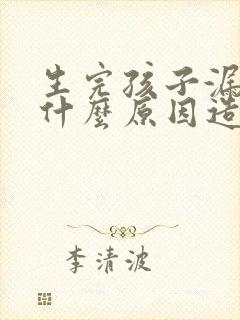 生完孩子漏
什麼原因造
李清波